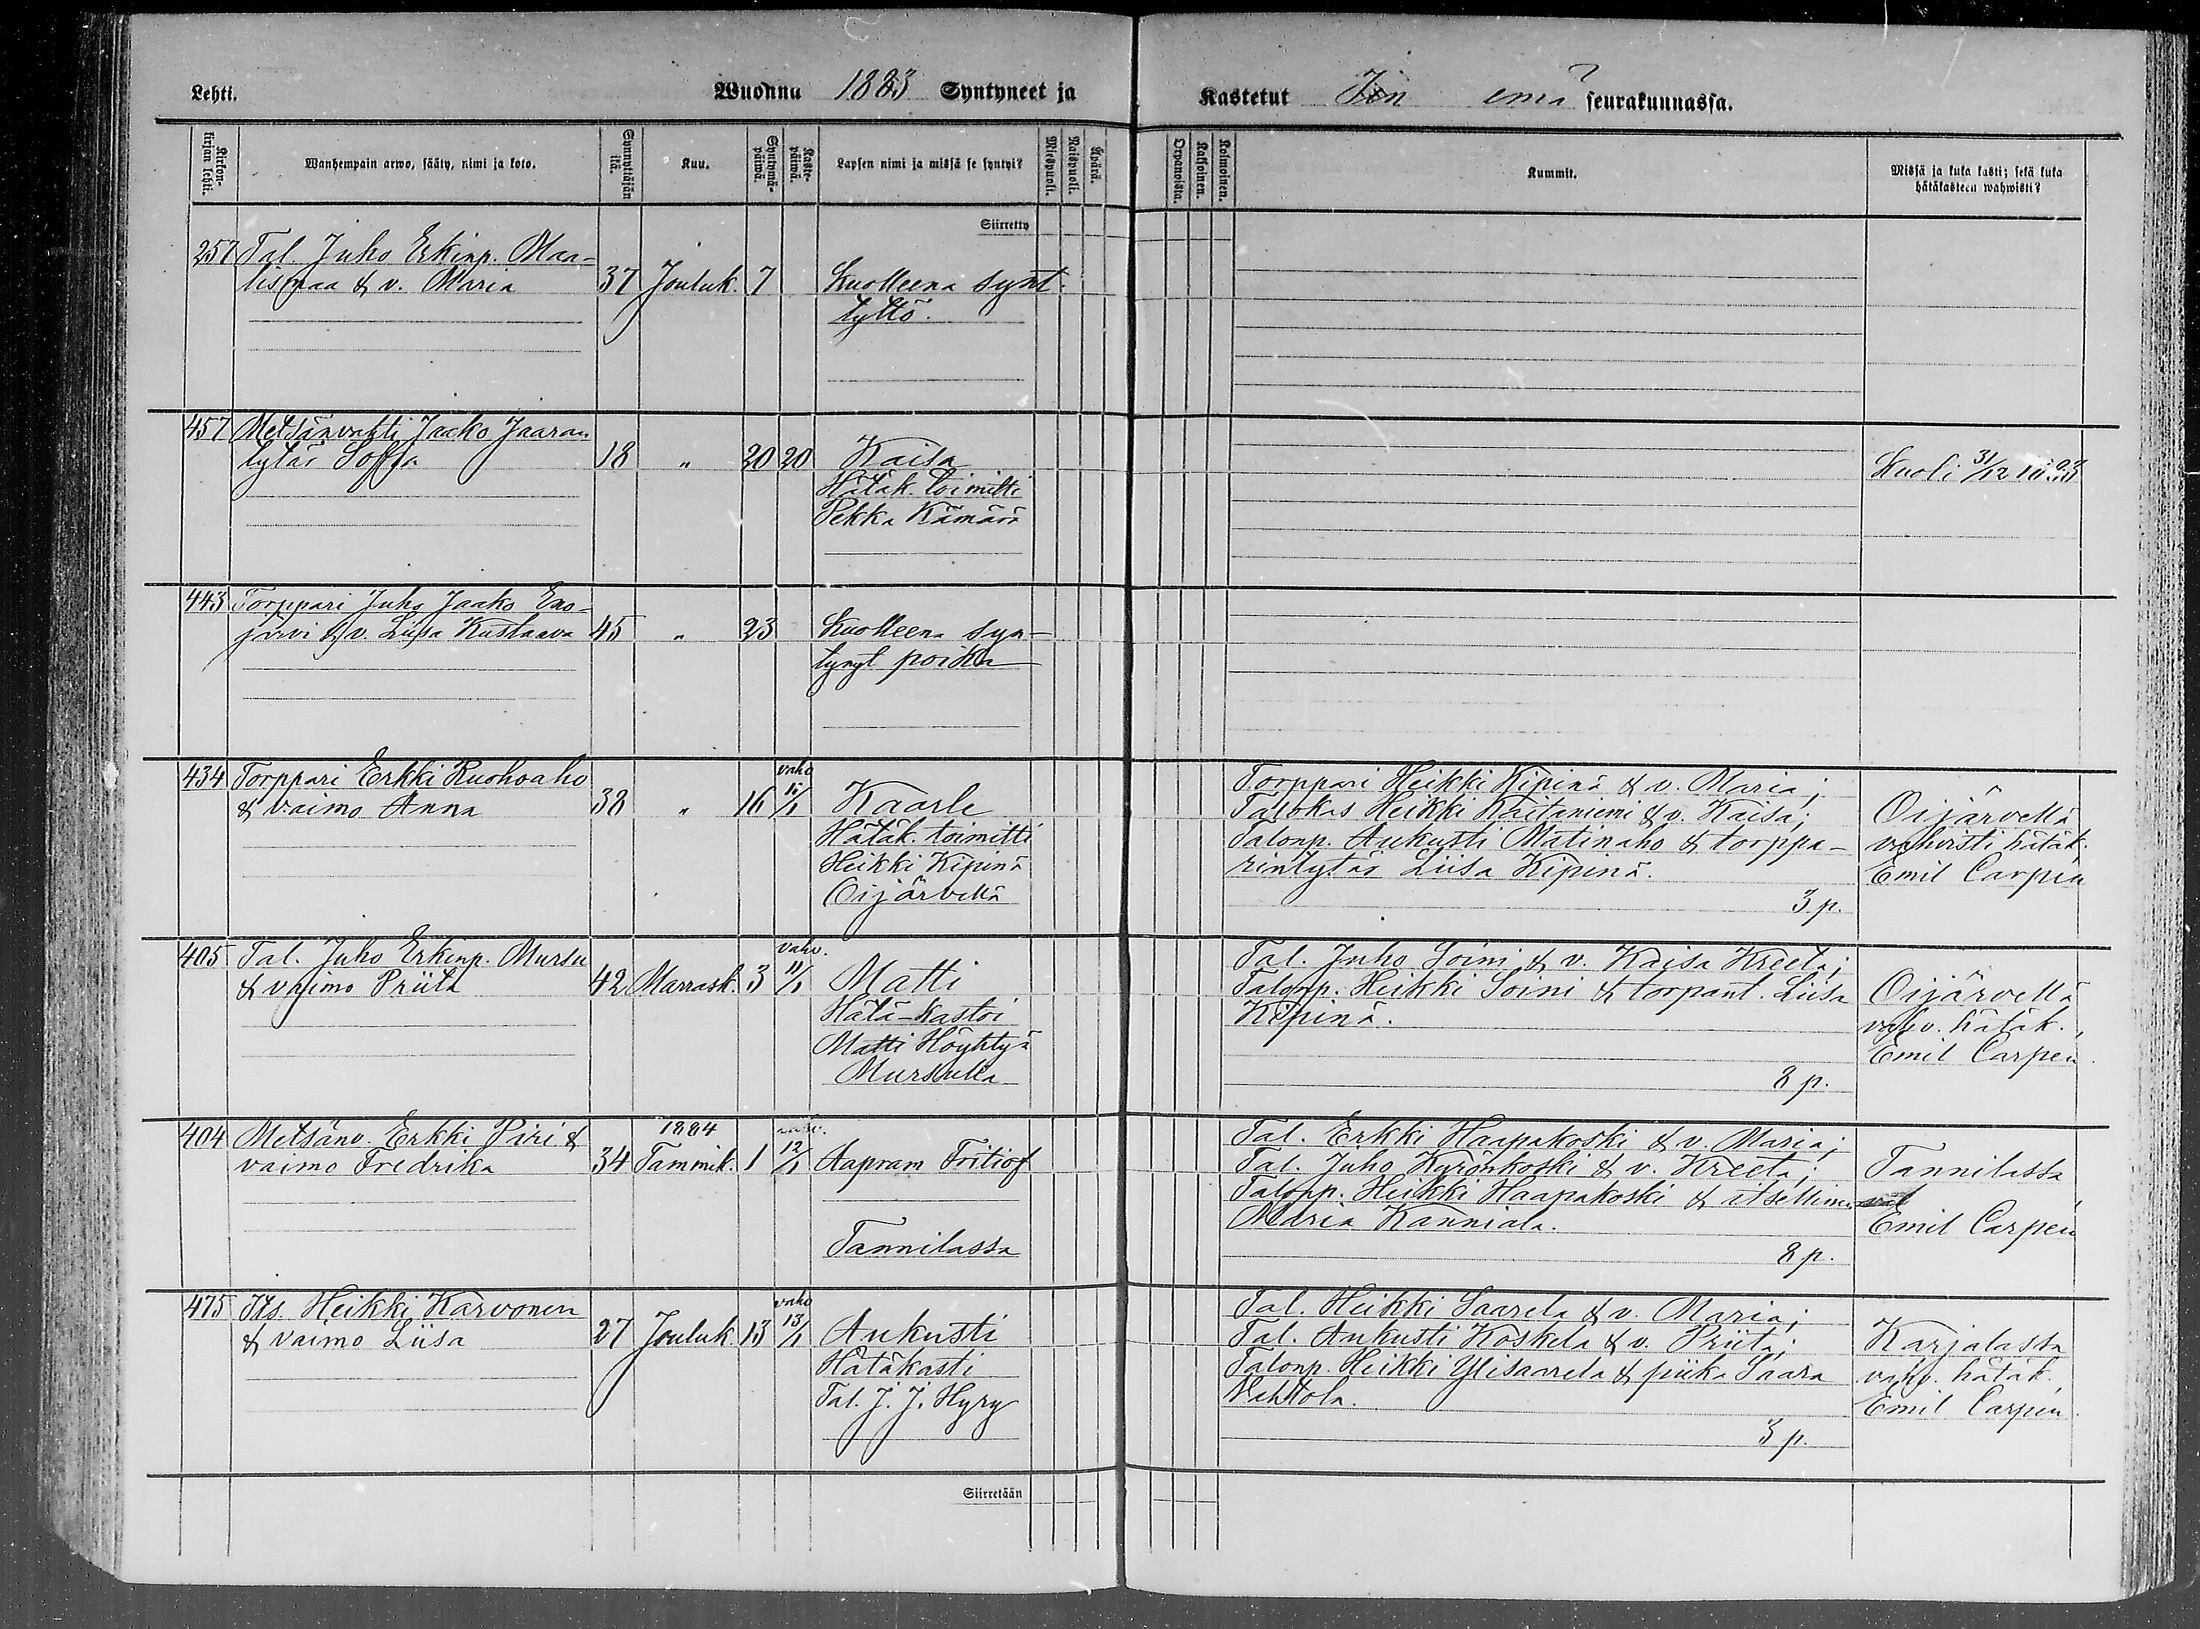 Lehti.
Wuonna 1883 Syntyneet ja
Kastetut Iin emä seurakunnassa.
Kirkon-
kirjan lehti.
Wanhempain arwo, sääty, nimi ja koto.
Synnyttäjän
ikä.
Kuu.
Syntymä-
päiwä.
Kaste-
päiwä.
Lapsen nimi ja missä se syntyi?
Miespuoli.
Naispuoli.
Äpärä.
Orpanoista.
Kaksoinen.
Kolmoinen.
Kummit.
Missä ja kuka kasti; sekä kuka
hätäkasteen wahwisti?
Siirretty
257 Tal. Juho Erkinp. Maa-
lismaa & v. Maria 37 Jouluk. 7 Kuolleena synt.
tyttö.
457 Metsänvahti Jaako Jaaran
tytär Soffia 18 " 20 20 Kaisa
Hätäk. toimitti
Pekka Kämärä
Kuoli 31/12 1883
443 Torppari Juho Jaako
järvi & v. Liisa Kustaava 45 " 23 Kuolleena syn-
tynyt poika
434 Torppari Erkki Ruohoaho
& vaimo Anna 38 " 16 vahv 11/1 Kaarle
Hätäk. toimitti
Heikki Kipinä
Oijärvellä
Torppari Heikki Kipinä & v. Maria;
Talokas Heikki Kaitaniemi & v. Kaisa;
Talonp. Aukusti Matinaho & torppa-
rintytär Liisa Kipinä.
3 p.
Oijärvellä
vahvisti hätäk.
Emil Carpén
405 Tal. Juho Erkinp. Mursu
& vaimo Priita 42 Marrask. 3 vahv. 11/1 Matti
Hätä-kastoi
Matti Höyhtyä
Mursulla
Tal. Juho Soini & v. Kaisa Kreeta;
Talonp. Heikki Soini & torpant. Liisa
Kipinä.
8 p.
Oijärvellä
vahv. hätäk.
Emil Carpén
404 Metsänv. Erkki Piri &
vaimo Fredrika 34 1884 Tammik. 1 12/1 Aapram Fritiof
Tannilassa
Tal. Erkki Haapakoski & v. Maria;
Tal. Juho Kyrönkoski & v. Kreeta;
Talonp. Heikki Haapakoski & itsellinen
Maria Kanniala.
8 p.
Tannilassa
Emil Carpén
475 Its. Heikki Karvonen
& vaimo Liisa 27 Jouluk. 13 vahv 13/1 Aukusti
Hätäkasti
Tal. J. J. Hyry
Tal. Heikki Saarela & v. Maria;
Tal. Aukusti Koskela & v. Priita;
Talonp. Heikki Ylisaarela & piika Saara
Vahtola.
3 p.
Karjalassa
vahv. hätäk.
Emil Carpén
Siirretään